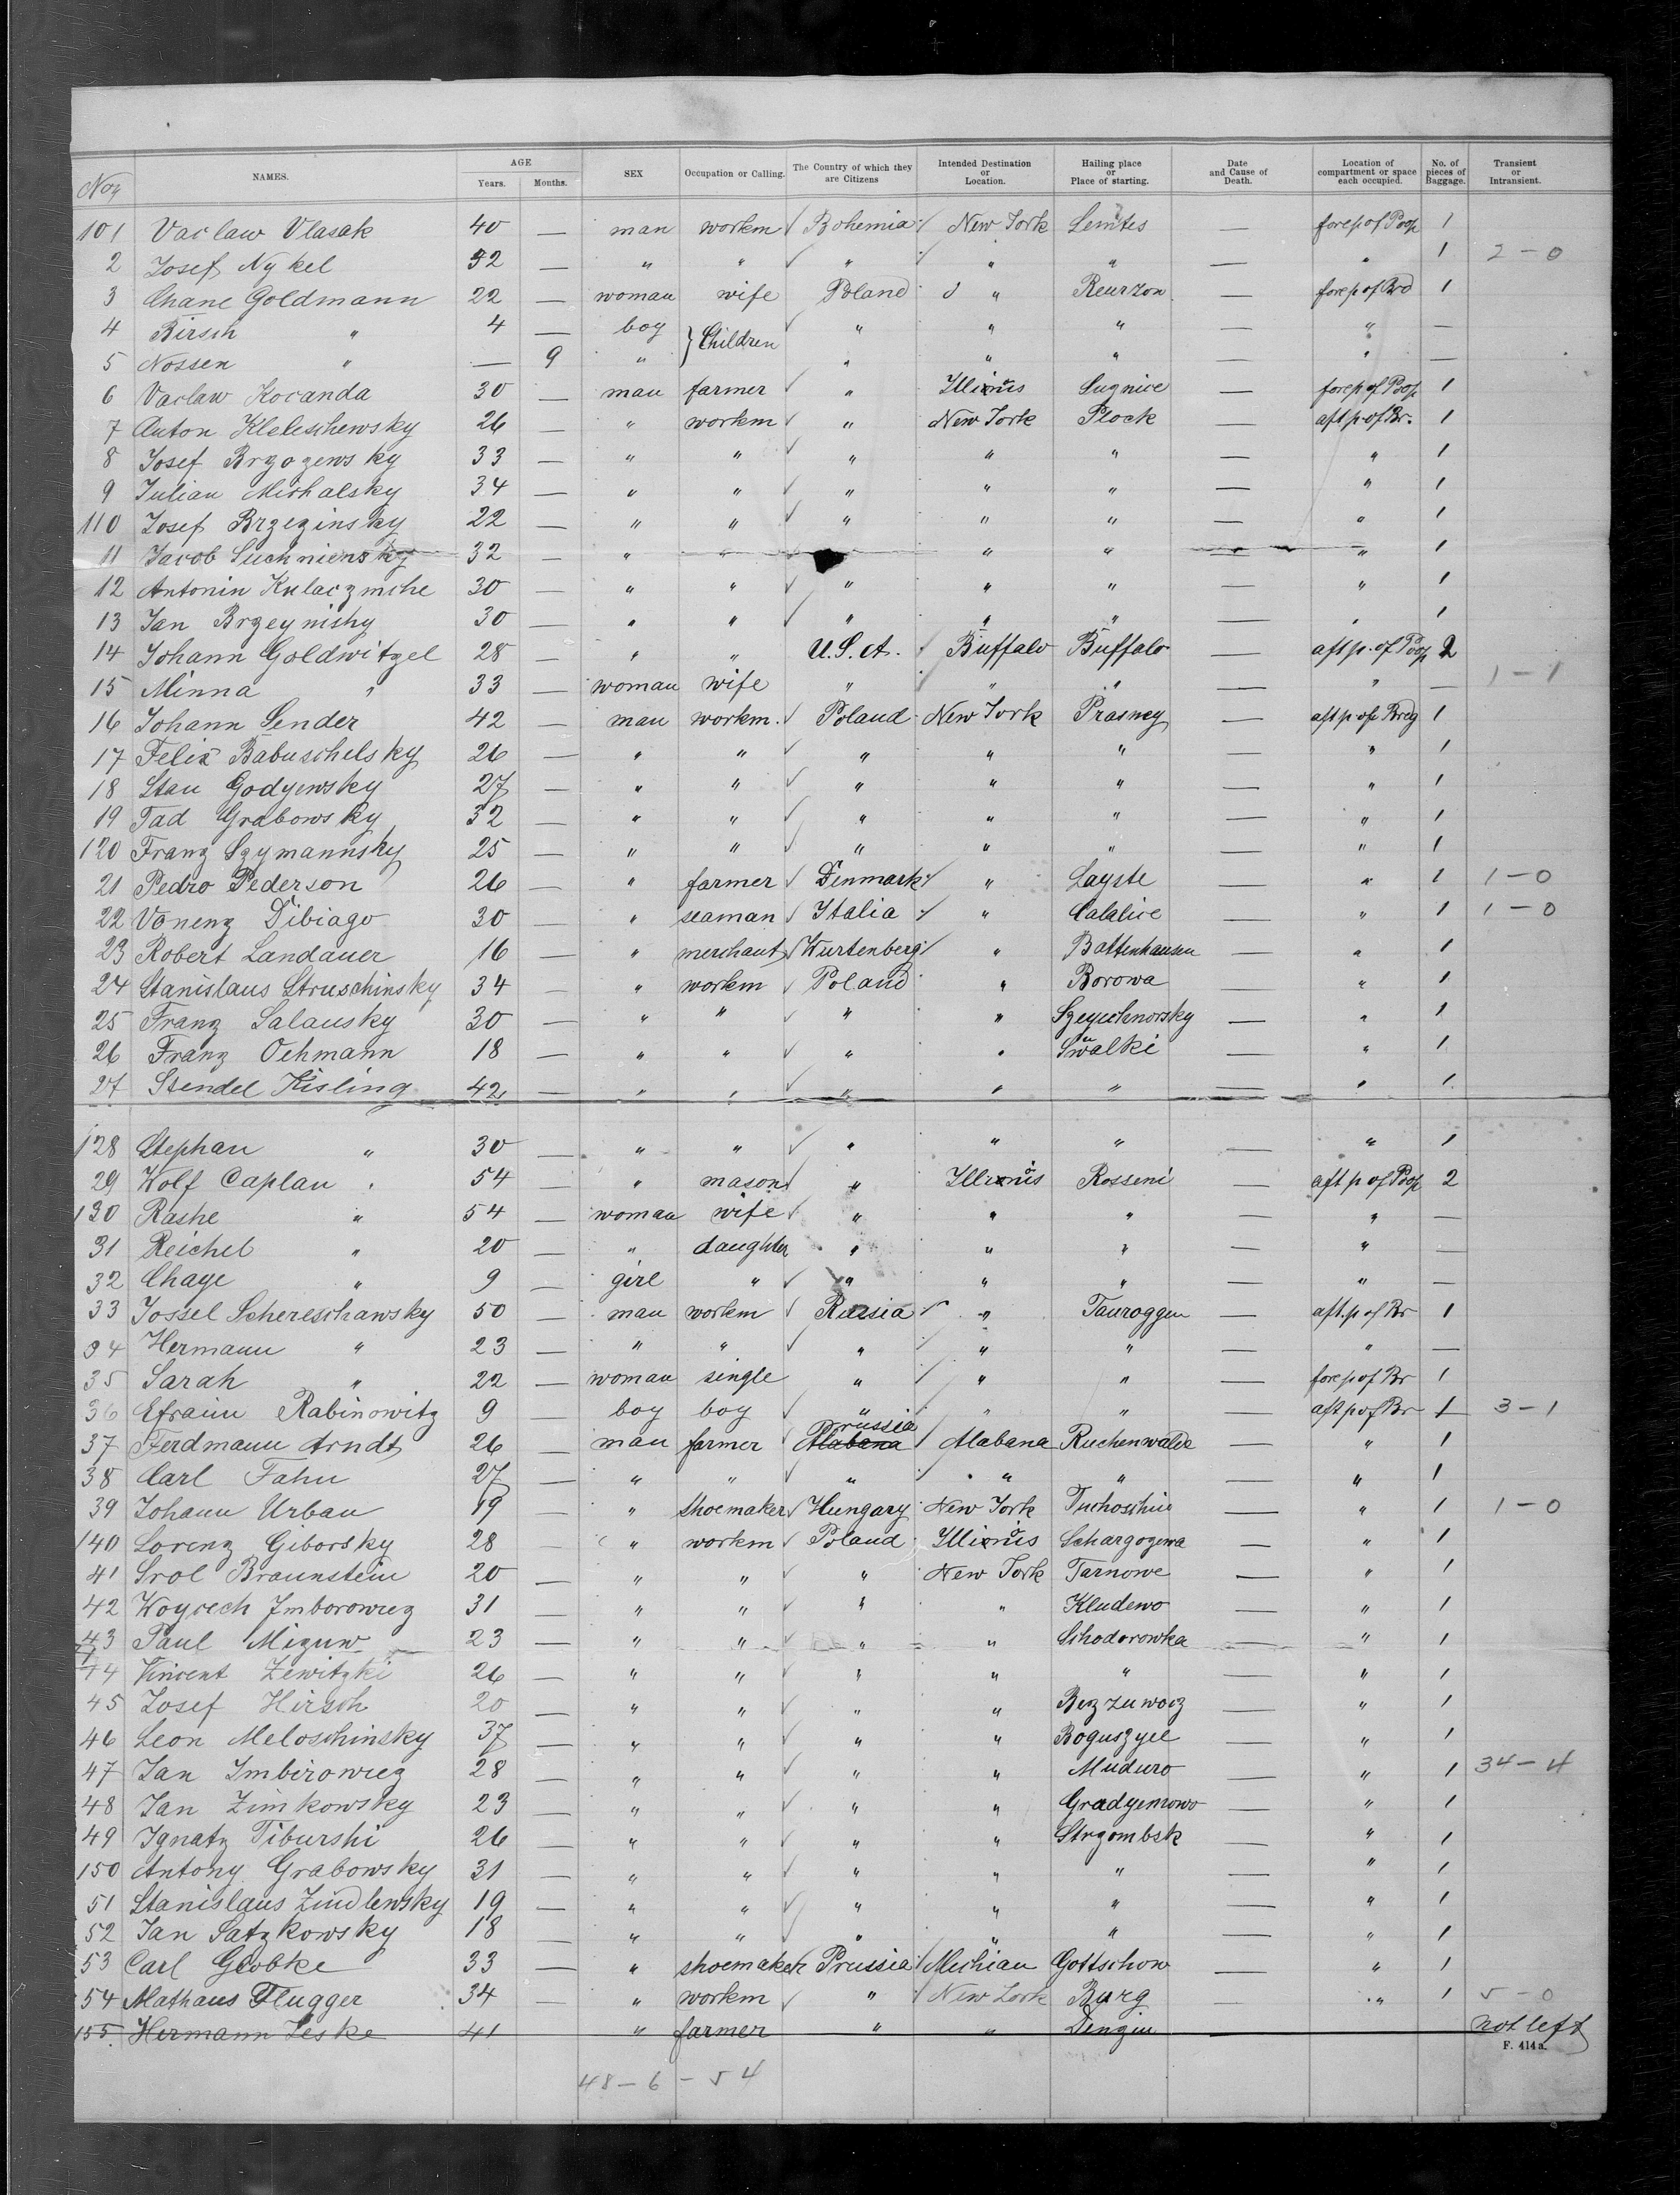 Nos NAMES. AGE Years. Months. SEX Occupation or Calling. The Country of which they are Citizens Intended Destination or Location. Hailing place or Place of starting. Date and Cause of Death. Location of compartment or space each occupied. No. of pieces of Baggage. Transient or Intransient.
101 Vaclaw Vlasak 40 — man workm Bohemia New York — forep of Poop 1
2 Josef Nykel 32 — " " " " " — " 1 2 – 0
3 Chane Goldmann 22 — woman wife Poland " Reurzon — forep of Brd 1
4 Birsch " 4 — boy } Children " " " — " —
5 Nossen " — 9 " " " " — " —
6 Vaclaw Kocanda 30 — man farmer " Illinois Lugnice — forep of Poop 1
7 Anton Kleleschewsky 26 — " workm " New York Plock — aft p. of Br. 1
8 Josef Brzozewsky 33 — " " " " " — " 1
9 Julian Michalsky 34 — " " " " " — " 1
110 Josef Brzezinsky 22 — " " " " " — " 1
11 Jacob Suchniensky 32 — " " " " — " 1
12 Antonin Kulaczmche 30 — " " " " " — " 1
13 Jan Brzeynishy 30 — " " " " " — " 1
14 Johann Goldwitzel 28 — " " U.S.A. Buffalo Buffalo — aft p. of Poop 2
15 Minna " 33 — woman wife " " " — " — 1 – 1
16 Johann Sender 42 — man workm. Poland New York Prasney — aft p of Breg 1
17 Felix Babuschelsky 26 — " " " " " — " 1
18 Stan Godyewsky 27 — " " " " " — " 1
19 Tad Grabowsky 32 — " " " " " — " 1
120 Franz Szymannsky 25 — " " " " " — " 1
21 Pedro Pederson 26 — " farmer Denmark " Layste — " 1 1 – 0
22 Vonenz Dibiago 30 — " seaman Italia " Calalice — " 1 1 – 0
23 Robert Landauer 16 — " merchant Wurtenberg " Battenhausen — " 1
24 Stanislaus Struschinsky 34 — " workm Poland " Borowa — " 1
25 Franz Salausky 30 — " " " " Szeyuchnorsky — " 1
26 Franz Oehmann 18 — " " " " Suwalki — " 1
27 Stendel Kisling 42 — " " " " " — " 1
128 Stephan " 30 — " " " " " — " 1
29 Wolf Caplan . 54 — " mason " Illinois Rosseni — aft p of Poop 2
130 Rashe " 54 — woman wife " " " — " —
31 Reichel " 20 — " daughter " " " — " —
32 Chaye " 9 — girl " " " " — " —
33 Jossel Schereschawsky 50 — man workm Russia " Tauroggen — aft. p of Br 1
34 Hermann " 23 — " " " " " — " —
35 Sarah " 22 — woman single " " " — forep of Br 1
36 Efraim Rabinowitz 9 — boy boy " " " — aft p of Br 1 3 – 1
37 Ferdmann Arndt 26 — man farmer Alabana Prussia Alabana Ruchenwalde — " 1
38 Carl Fahn 27 — " " " " " — " 1
39 Johann Urban 19 — " shoemaker Hungary New York Tuchoschin — " 1 1 – 0
140 Lorenz Giborsky 28 — " workm Poland Illinois Schargozewa — " 1
41 Srol Braunstein 20 — " " " New York Tarnowe — " 1
42 Woycech Imborowiez 31 — " " " " Kludewo — " 1
43 Paul Mizuw 23 — " " " " Schodorowka — " 1
44 Vincent Zewitzki 26 — " " " " " — " 1
45 Josef Hirsch 20 — " " " " — " 1
46 Leon Meloschinsky 37 — " " " " Boguszyce — " 1
47 Jan Imbirowiez 28 — " " " " Muduro — " 1 34 – 4
48 Jan Zimkowsky 23 — " " " " Gradyemowo — " 1
49 Ignatz Tiburshi 26 — " " " " Strzombsk — " 1
150 Antony Grabowsky 31 — " " " " " — " 1
51 Stanislaus Zindlewsky 19 — " " " " " — " 1
52 Jan Satzkowsky 18 — " " " " " — " 1
53 Carl Globke 33 — " shoemaker Prussia Michian Gottschow — " 1
54 Mathaus Flugger 34 — " workm " New York Burg — " 1 5 – 0
155 Hermann Jeske 41 " farmer " " Denzin not left
F. 414a.
48 – 6 – 54